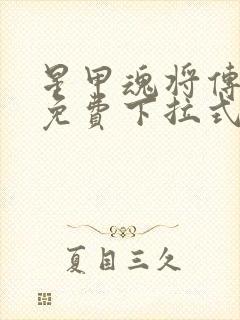 星甲魂将傳
免費下拉式
夏目三久